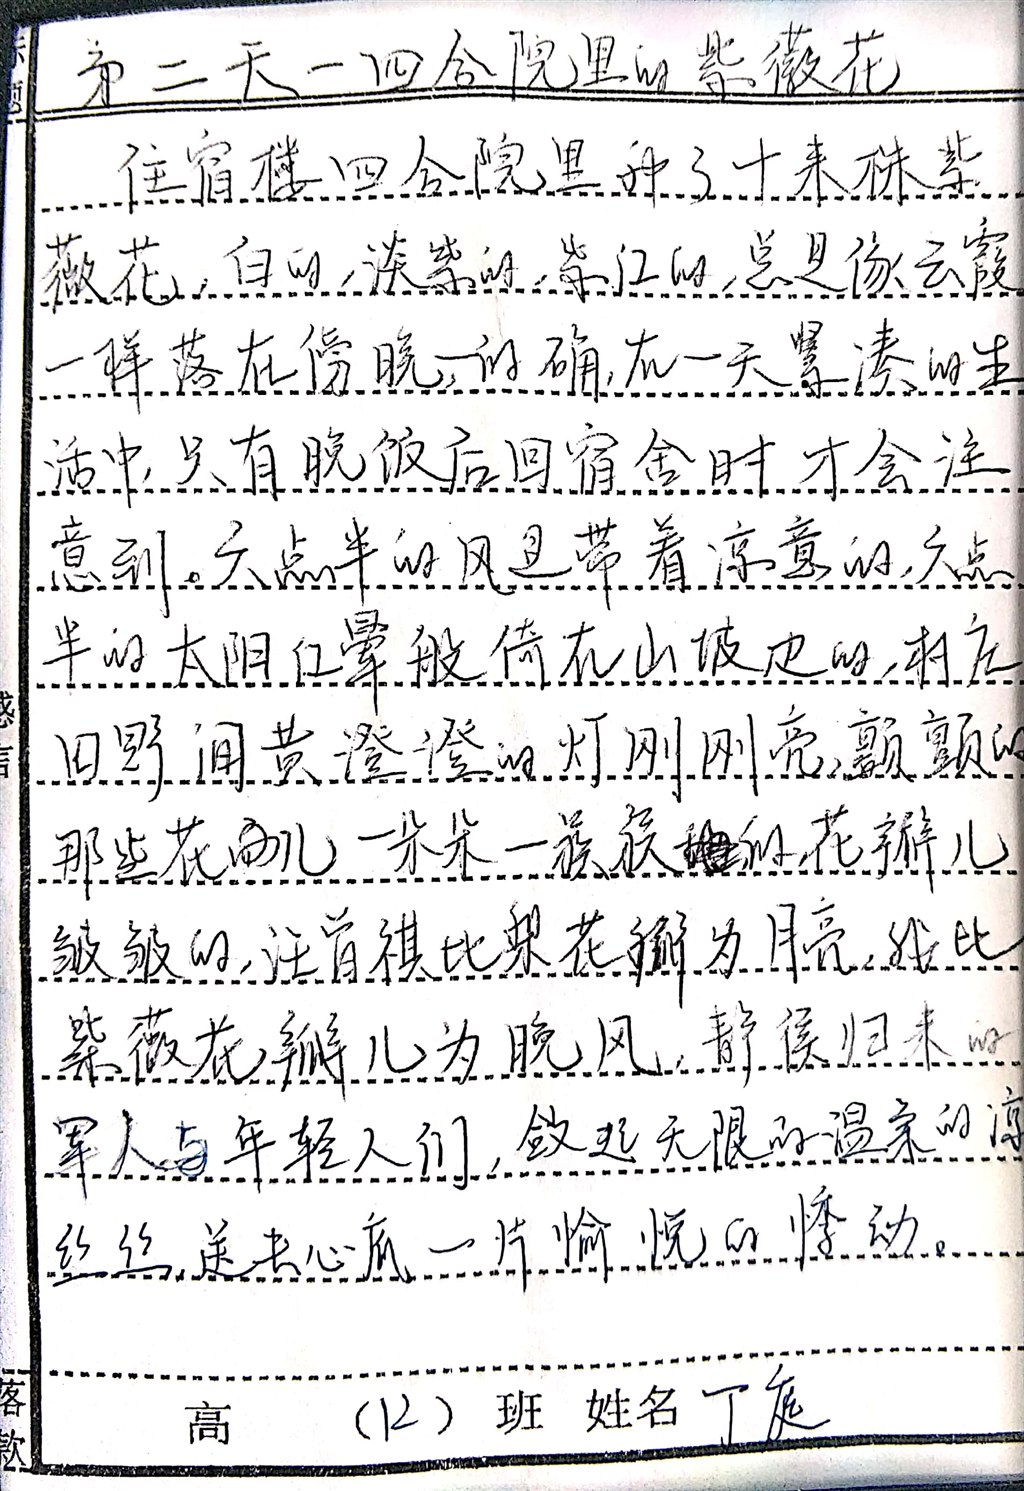 标题
第二天一四合院里的紫薇花
住宿楼四合院里种了十来株紫
薇花，白的，淡紫的，紫红的，总是像云霞
一样落在傍晚，的确，在一天紧凑的生
活中，只有晚饭后回宿舍时才会注
意到。六点半的风是带着凉意的，六点
半的太阳红晕般倚在山坡边的，村庄
田野间黄澄澄的灯刚刚亮，颤颤的
那些花儿一朵朵一簇簇的，花瓣儿
皱皱的，汪曾祺比梨花瓣为月亮，我比
紫薇花瓣儿为晚风，静候归来的
军人与年轻人们，敛起无限的温柔的凉
丝丝，送去心底一片愉悦的悸动。
感言
落款
高 （12） 班 姓名 丁庭